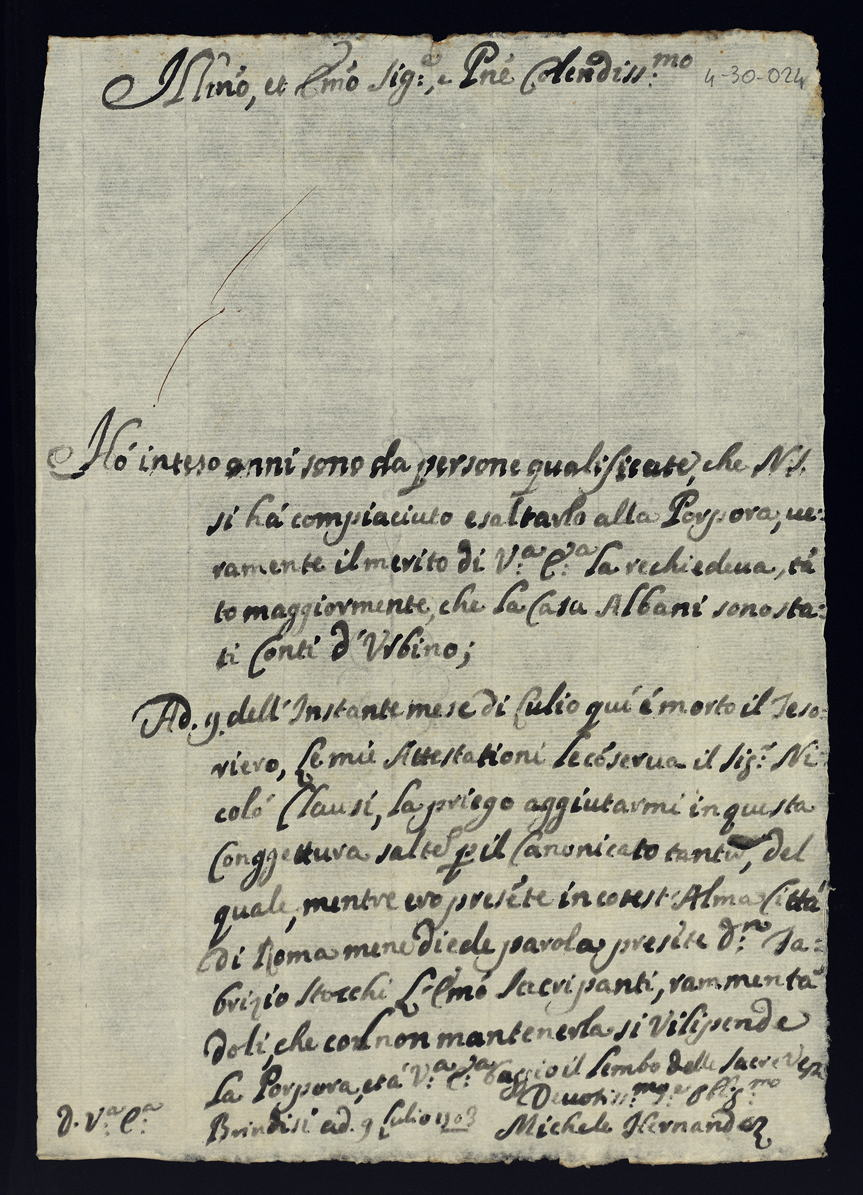 Ill.mo, et E.mo Sig.e, e Pne Colendiss.mo
4-30-024
Hó inteso anni sono da persone qualificate, che N.S.
si há compiaciuto esaltarlo alla Porpora, ue:
ramente il merito di V.a E.a la rechiedeua, tá
to maggiormente, che la Casa Albani sono sta:
ti Conti d'Vrbino;
Ad. 9. dell'Instante mese di Lulio quí é morto il Teso:
riero, le mie Attestationi le cóserua il Sig.r Ni:
coló Clausi, la priego aggiutarmi in questa
Conggettura salté p il Canonicato tantú, del
quale, mentre ero preséte in cotest'Alma Cittá
di Roma me ne diede parola preséte D.n Fa:
brizio Stocchi L'E.mó Sacripanti, rammentá
doli, che con non mantenerla si Vilipende
la Porpora, et á V.a E.a baggio il lembo delle Sacre Vez
D. V.a E.a
Deuotiss.mo e Oblig.mo
Brindisi ad. 9 Lulio 1703
Michele Hernandez